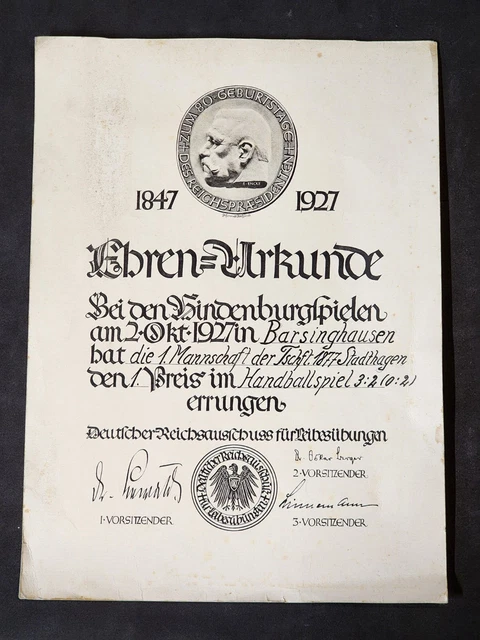 ZUM·80·GEBURTSTAGE
DES REICHSPRÆSIDENTEN
1847 1927
Ehren=Urkunde
Bei den Hindenburgspielen
am 2·Okt·1927 in Barsinghausen
hat die 1. Mannschaft der Tschft. 1877-Stadthagen
den 1. Preis im Handballspiel 3:2 (0:2)
errungen
Deutscher Reichsausschuss für Leibesübungen
Deutscher Reichsausschuß
für Leibesübungen
1·VORSITZENDER
2·VORSITZENDER
3·VORSITZENDER